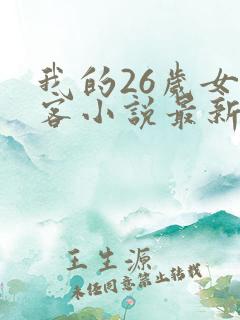 我的26歲女
客小說最新
王生源
未经同意禁止转载